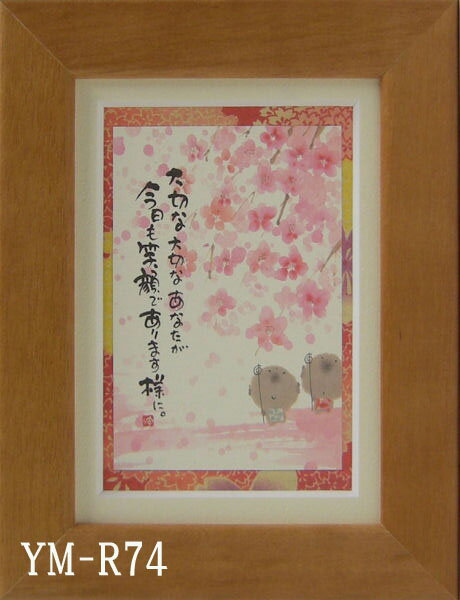 大切な大切なあなたが
今日も笑顔であります様に。
YM-R74